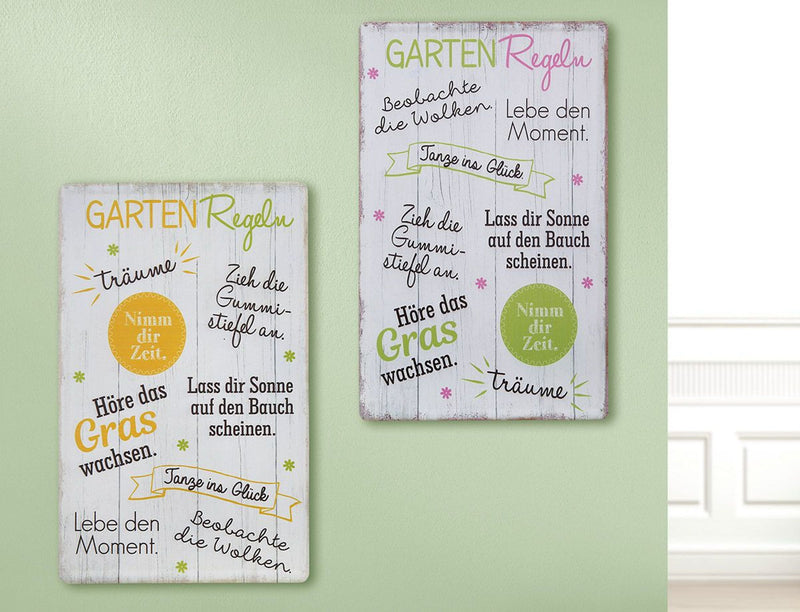 GARTEN Regeln
träume
Zieh die
Gummi-
stiefel an.
Nimm
dir
Zeit.
Höre das
Gras
wachsen.
Lass dir Sonne
auf den Bauch
scheinen.
Tanze ins Glück
Lebe den
Moment.
Beobachte
die Wolken.
GARTEN Regeln
Beobachte
die Wolken.
Lebe den
Moment.
Tanze ins Glück
Zieh die
Gummi-
stiefel an.
Lass dir Sonne
auf den Bauch
scheinen.
Höre das
Gras
wachsen.
Nimm
dir
Zeit.
träume